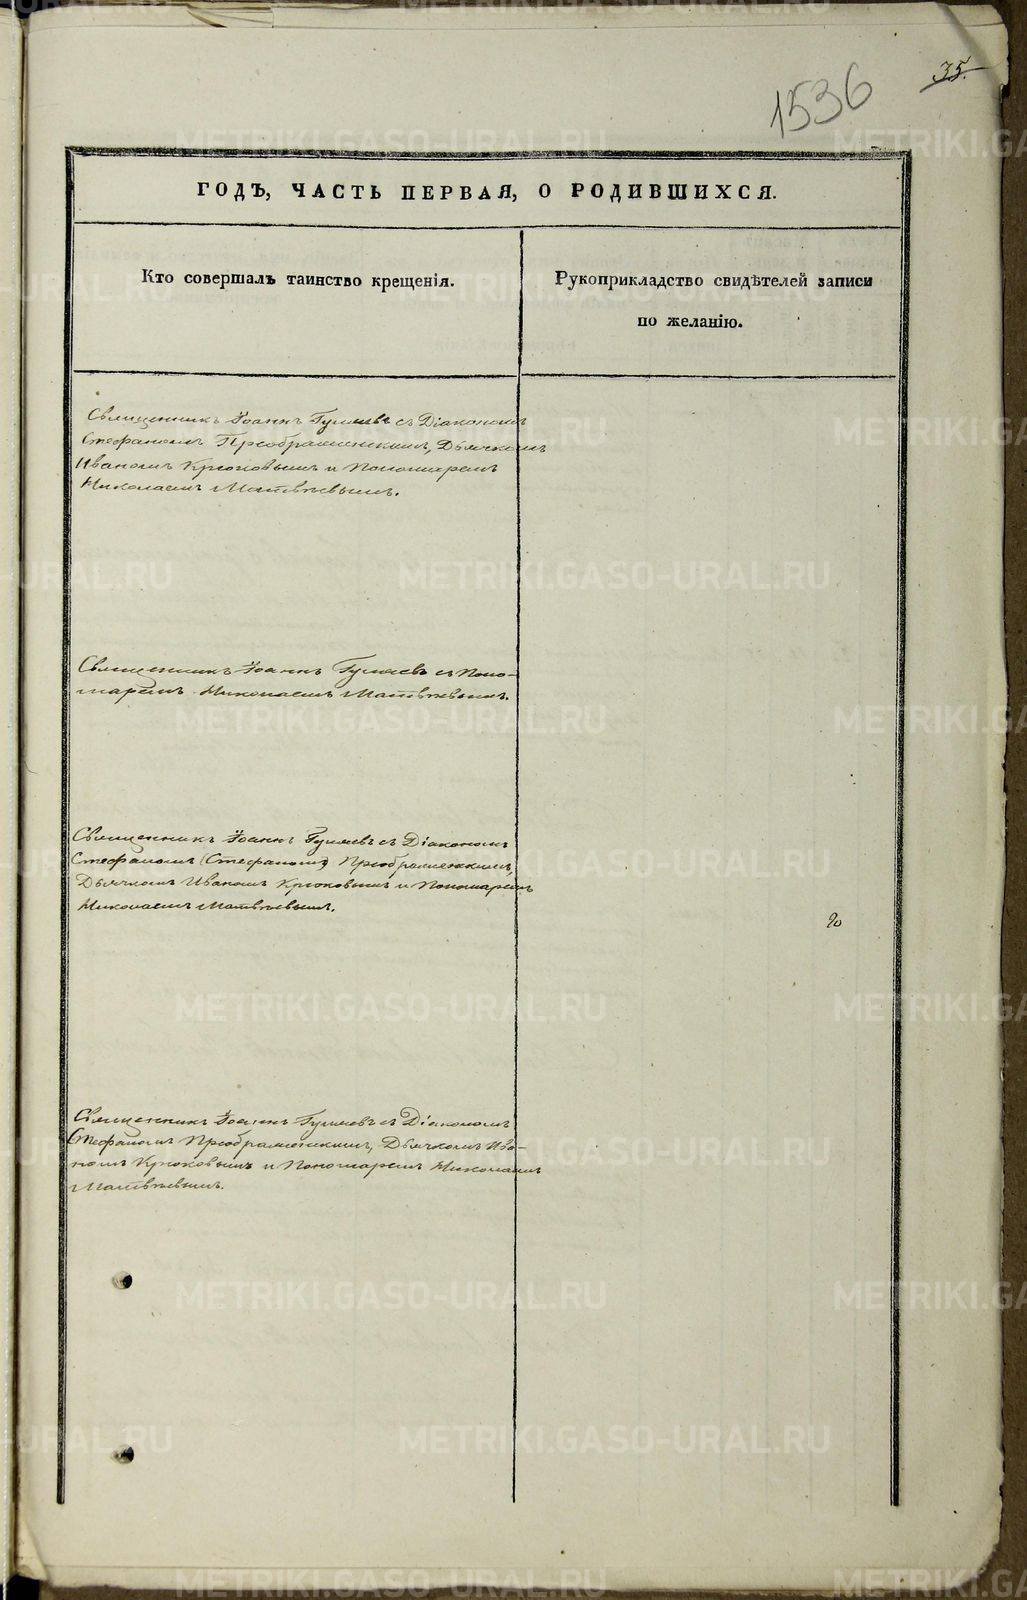 35.
1536
ГОДЪ, ЧАСТЬ ПЕРВАЯ, О РОДИВШИХСЯ.
Кто совершалъ таинство крещенія.
Рукоприкладство свидѣтелей записи
по желанію.
Священникъ Іоаннъ Гуляевъ съ Діакономъ
Стефаномъ Преображенскимъ, Дьячкомъ
Иваномъ Крюковымъ и Пономаремъ
Николаемъ Матвѣевымъ.
Священникъ Іоаннъ Гуляевъ съ Поно-
маремъ Николаемъ Матвѣевымъ.
Священникъ Іоаннъ Гуляевъ съ Діакономъ
Стефаномъ (Стефаномъ) Преображенскимъ,
Дьячкомъ Иваномъ Крюковымъ и Пономаремъ
Николаемъ Матвѣевымъ.
Священникъ Іоаннъ Гуляевъ съ Діакономъ
Стефаномъ Преображенскимъ, Дьячкомъ Ива-
номъ Крюковымъ и Пономаремъ Николаемъ
Матвѣевымъ.
METRIKI.GASO-URAL.RU